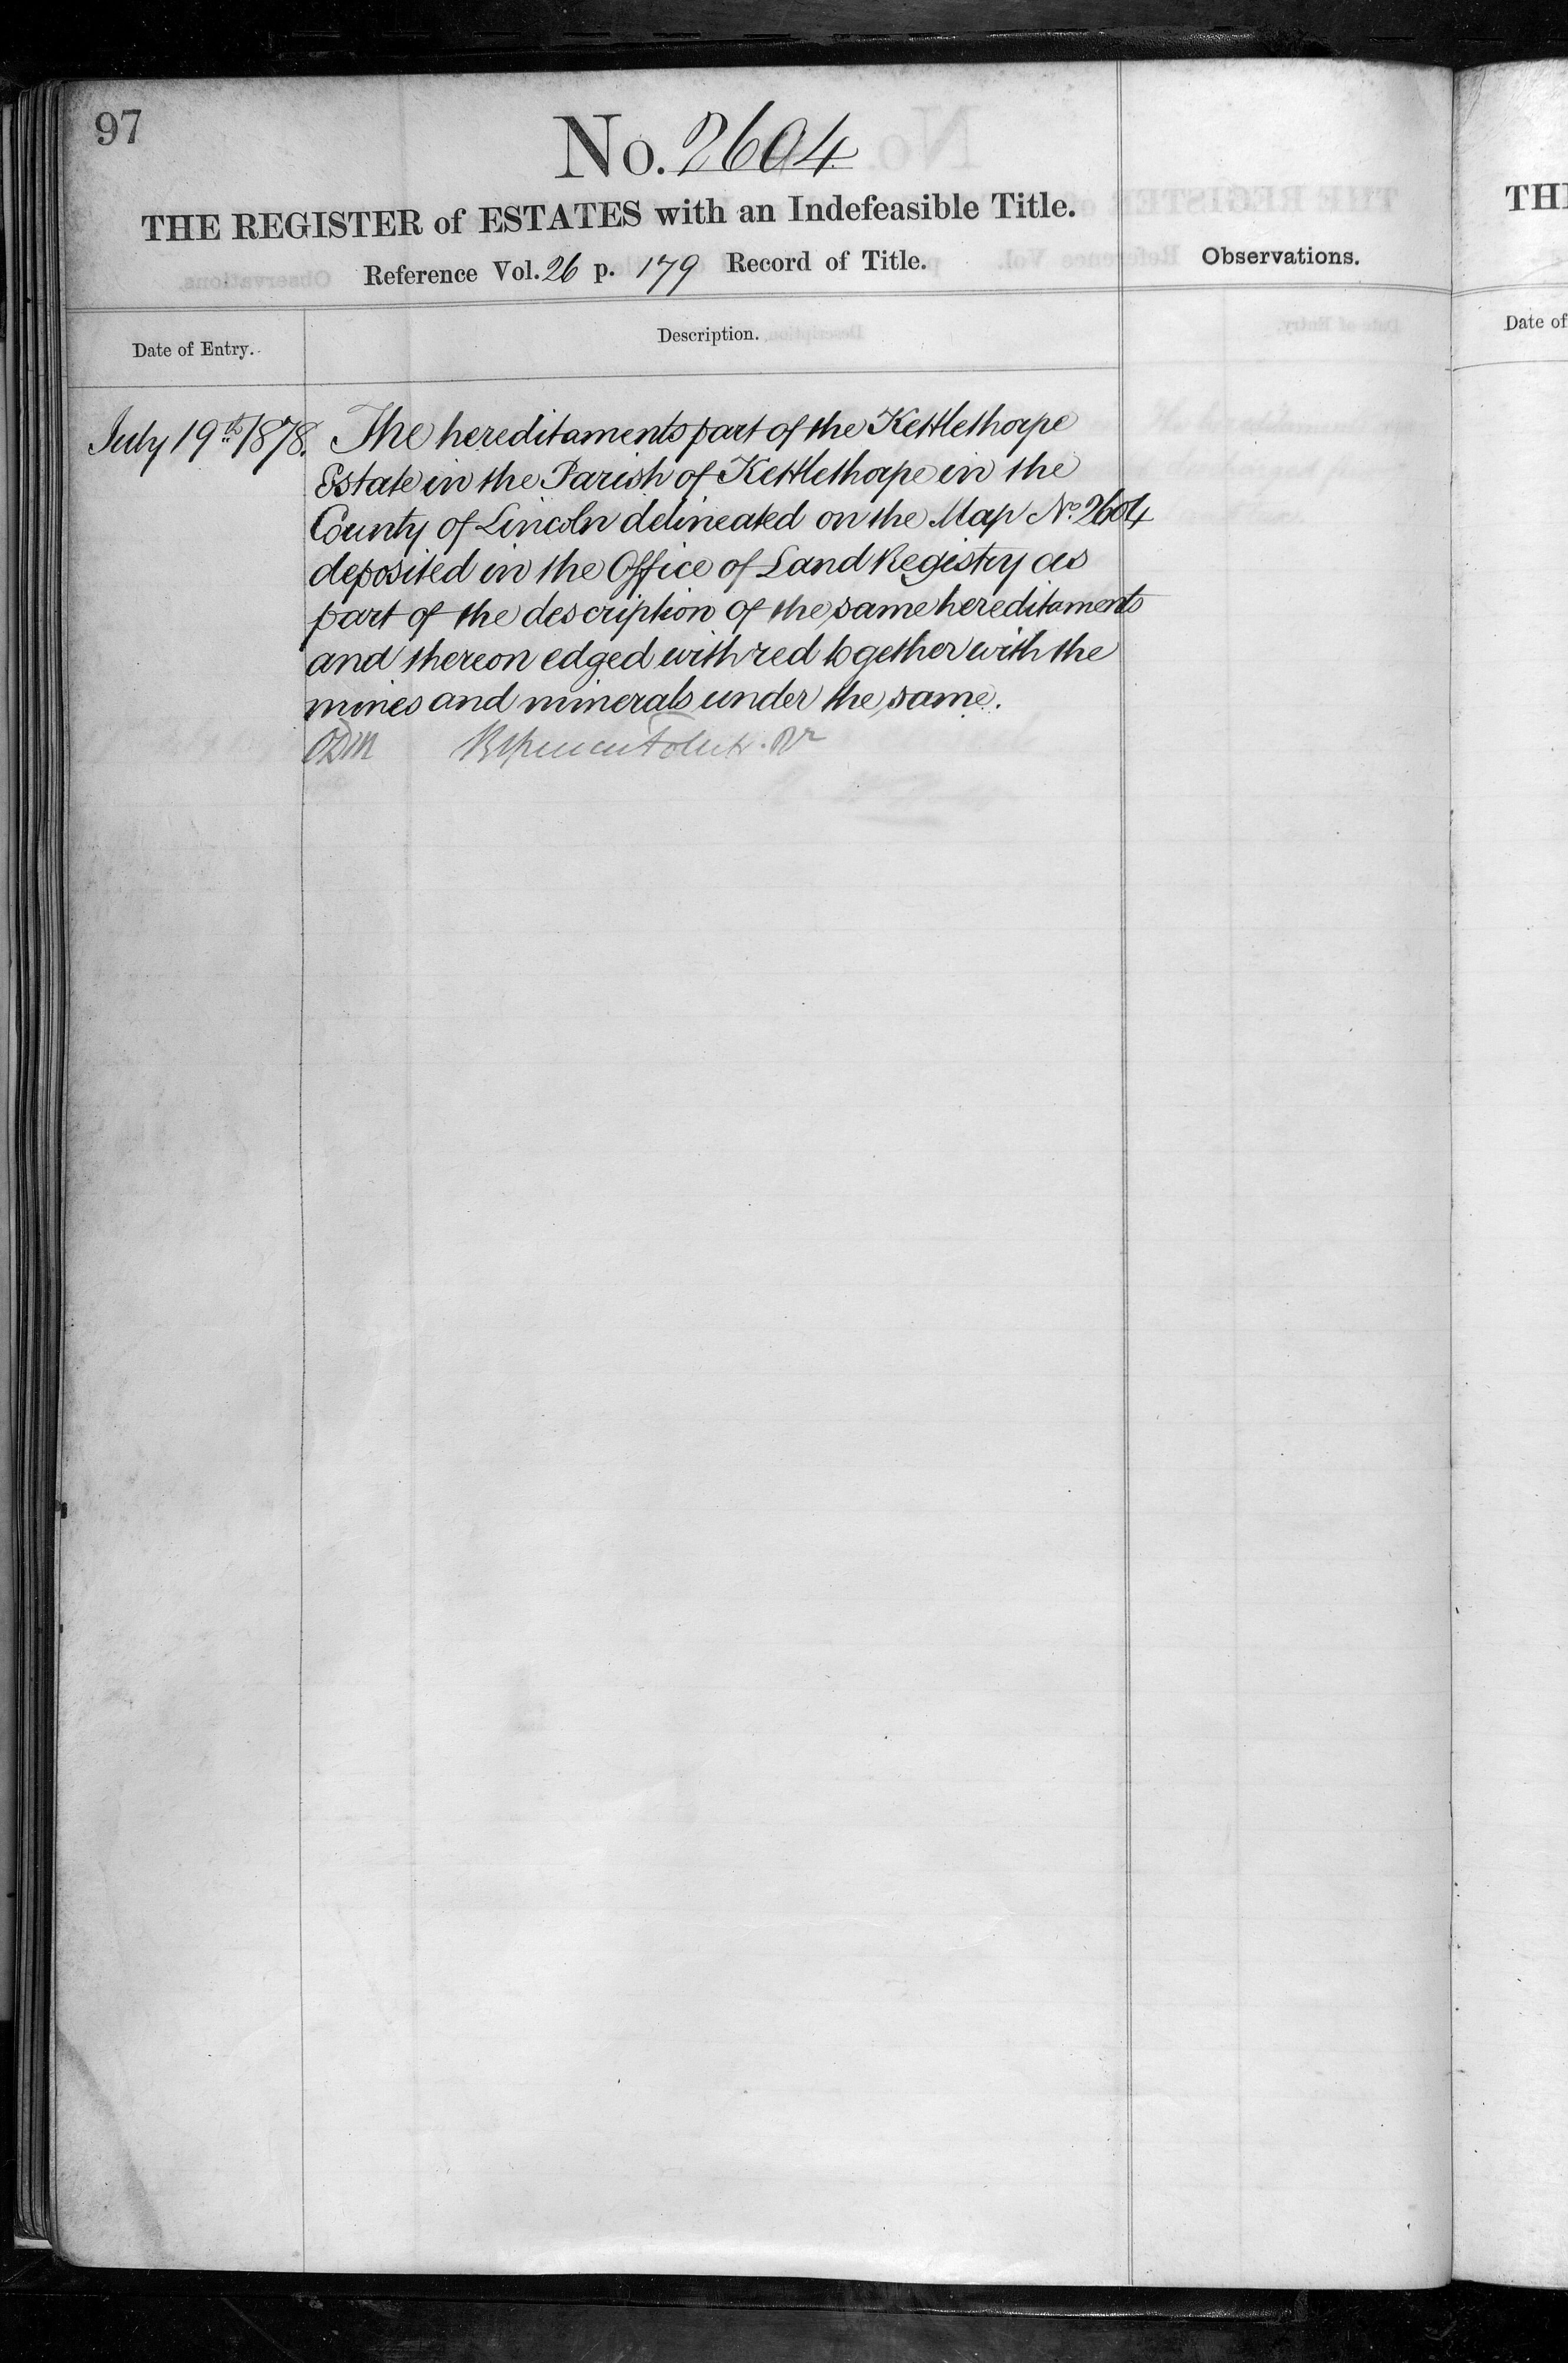 97
No. 2604
THE REGISTER of ESTATES with an Indefeasible Title.
Reference Vol. 26 p. 179 Record of Title.
Observations.
Date of Entry.
Description.
July 19th 1878. The hereditaments part of the Kettlethorpe
Estate in the Parish of Kettlethorpe in the
County of Lincoln delineated on the Map No. 2604
deposited in the Office of Land Registry as
part of the description of the same hereditaments
and thereon edged with red together with the
mines and minerals under the same.
TH
Date of